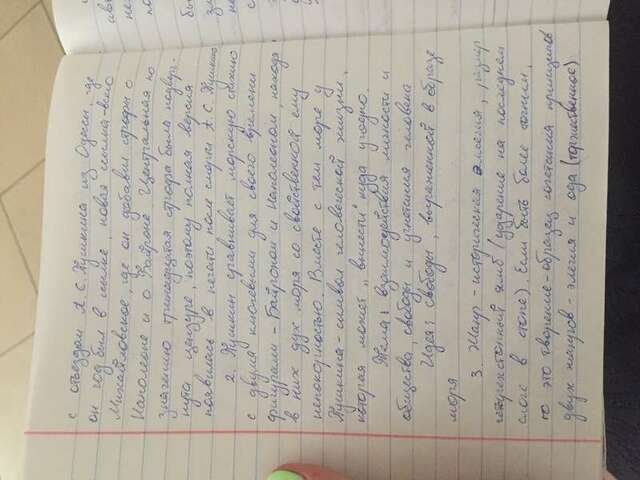 с отъездом А.С.Пушкина из Одессы, где
он год был в ссылке, новая ссылка-село
Михайловское, где он добавил строфы о
Наполеоне и о Байроне Центральная по
значению тринадцатая строфа была подверг-
нута цензуре, поэтому полная версия
появилась в печати после смерти А.С.Пушкина
2. Пушкин сравнивает морскую стихию
с двумя ключевыми для своего времени
фигурами - Байроном и Наполеоном, находя
в них дух моря со свойственной ему
непокорностью. Вместе с тем море у
Пушкина - символ человеческой жизни,
которая может „вынести" куда угодно.
Тема: взаимодействия личности и
общества, свободы и угнетания человека
Идея: свободы, выраженной в образе
моря
3. Жанр - историческая элегия, размер
четырехстопный ямб (ударение на последнем
слоге в стопе). Если быть более точным,
то это творение - образец сочетания принципов
двух жанров - элегия и ода (торжественное)